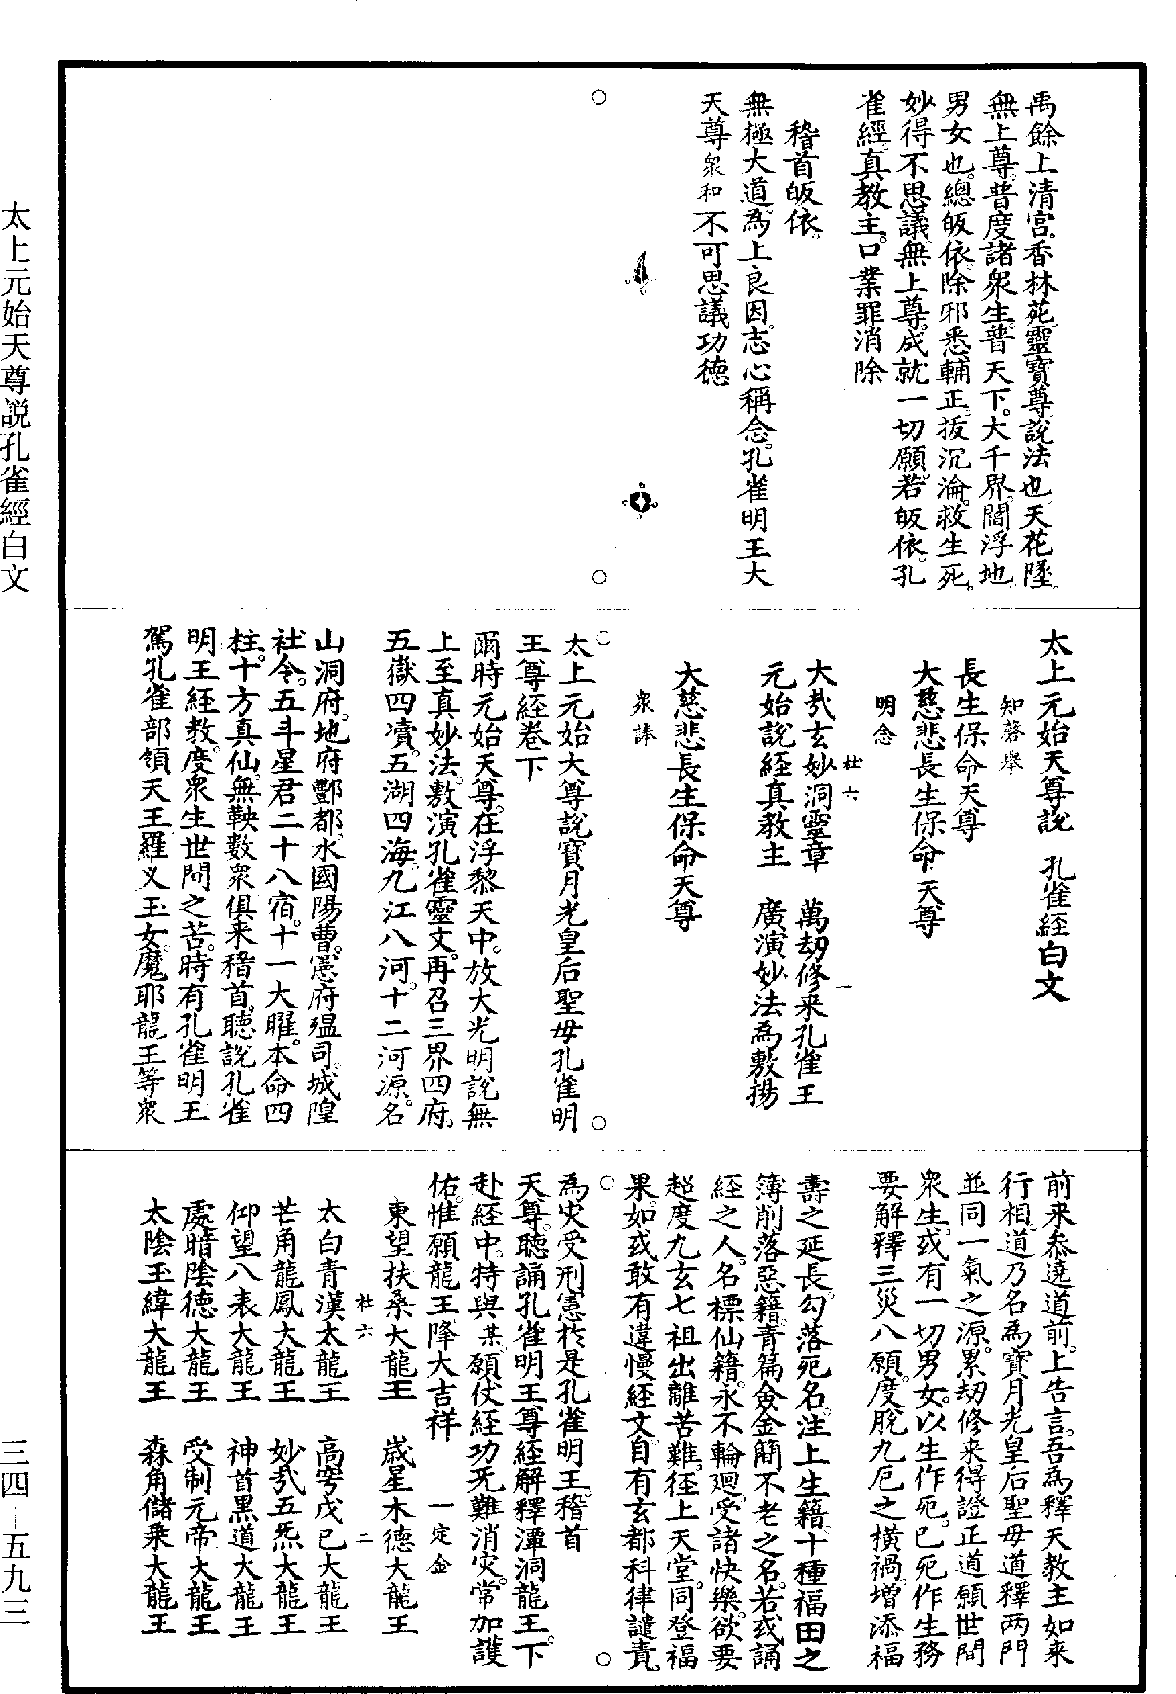 禹餘上清宮。香林苑。靈寶尊。說法也。天花墜。
無上尊。普度諸眾生。普天下。大千界。閻浮地。
男女也。總皈依。除邪悉輔正。拔沉淪。救生死。
妙得不思議。無上尊。成就一切願。若皈依。孔
雀經。真教主。口業罪消除
稽首皈依。
無極大道。為上良因。志心稱念。孔雀明王大
天尊眾和不可思議功德
太上元始天尊說 孔雀經白文
知磬舉
長生保命天尊
大慈悲長生保命天尊
明念
杜六 一
大哉玄妙洞靈章 萬劫修來孔雀王
元始說經真教主 廣演妙法為敷揚
大慈悲長生保命天尊
眾諱
太上元始大尊說寶月光皇后聖母孔雀明
王尊經卷下
爾時元始天尊。在浮黎天中。放大光明說無
上至真妙法。敷演孔雀靈文。再召三界四府。
五嶽四瀆。五湖四海。九江八河。十二河源。名
山洞府。地府酆都。水國陽曹。憲府瘟司。城隍
社令。五斗星君二十八宿。十一大曜。本命四
柱。十方真仙。無鞅數眾俱來稽首。聽說孔雀
明王經教。度眾生世間之苦。時有孔雀明王
駕孔雀部領天王羅义玉女。魔耶龍王等眾
前來叅遶道前。上告言。吾為釋天教主如來
行相。道乃名為寶月光皇后聖母道釋两門
並同一氣之源。累劫修來得證正道願世間
眾生。或有一切男女。以生作死。已死作生務
要解釋三災八願。度脫九厄之橫禍。增添福
壽之延長。勾落死名。注上生籍。十種福田之
簿削落惡籍。青篇僉金簡不老之名。若或誦
經之人。名標仙籍。永不輪廻。受諸快樂。欲要
超度九玄七祖出離苦難。徑上天堂。同登福
果。如或敢有違慢經文。自有玄都科律譴責
為災受刑憲於是孔雀明王。稽首
天尊。聽誦孔雀明王尊經解釋潭洞龍王。下
赴經中。特與某願仗經功死難消灾。常加護
佑。惟願龍王降大吉祥 一定金
東望扶桑大龍王 歲星木德大龍王
杜六 二
太白青漢太龍王 高穹戊已大龍王
芒角龍鳳大龍王 妙哉五炁大龍王
仰望八表大龍王 神首黑道大龍王
處暗陰德大龍王 受制元帝大龍王
太陰玉緯大龍王 森角儲乘大龍王
太上元始天尊說孔雀經白文
三四—五九三